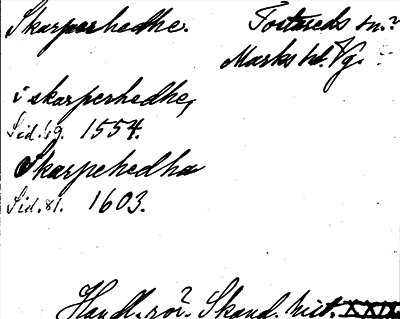 Skarperhedhe. Tostareds sn.?
Marks hd. Vg.
i skarperhedhe,
Sid. 49. 1554.
Skarpehedha
Sid. 81. 1603.
Handl. rör. Skand. hist. XXIX.